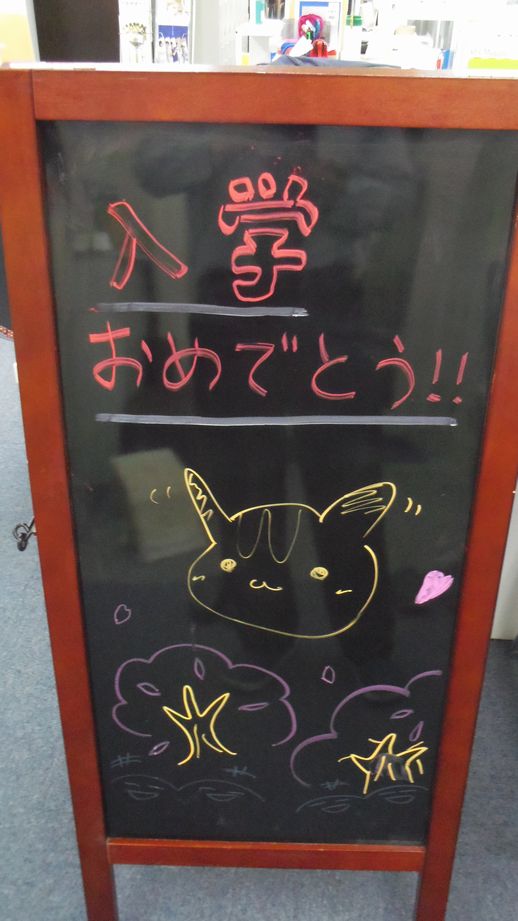 入学
おめでとう!!